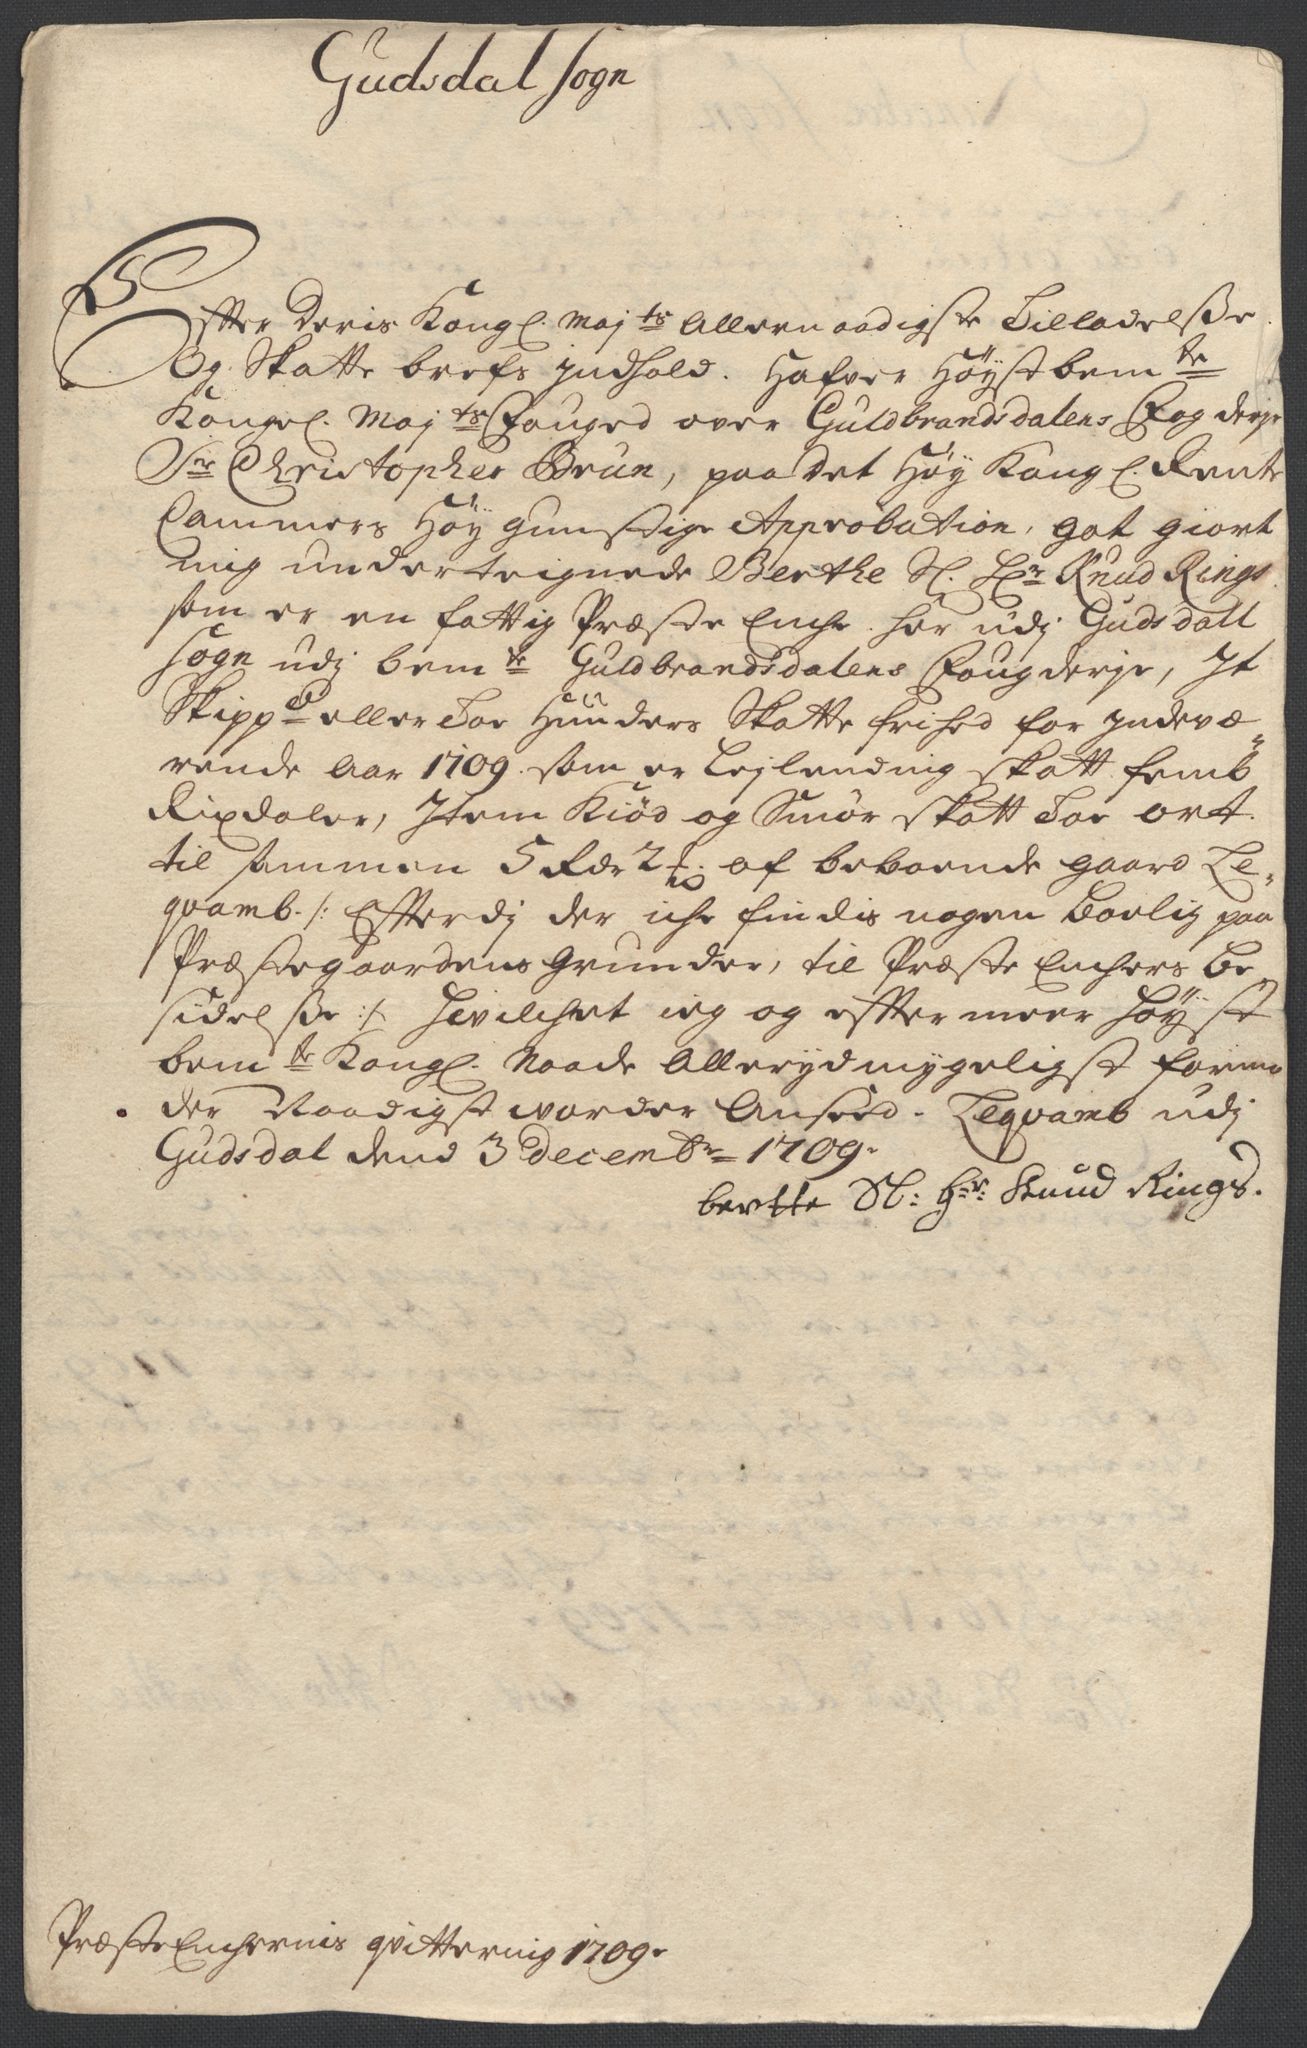 Gudsdal sogn
Effter Deris Kongl. Maj:ts Allernaadigste Tilladelsse
Og Skatte brefs Jndhold. Hafver Høystbem:te
Kongel. Maj:ts Fouged over Guldbrandsdalens Fogderje
Sr Christopher Brun, paa det Høy Kongl. Rente
Cammers Høygunstige Approbation, got giort
mig underteignede Berthe Sl. Hr Knud Rings
som er en fattig Præste Enche her udj Gudsdall
sogn udj bem:te Guldbrandsdalens Fougderje, Jt
Skippd eller Toe Hunders Skatte frihed for Jndevæ=
rende Aar 1709. som er Lejlending skatt femb
Rixdaler, Jtem Kiød og Smør skatt Toe ort.
til sammen 5 Rdr 2 af beboende gaard Le=
qvamb. /: Effterdj der iche findis nogen Boelig paa
Præstegaardens Grunder, til Præste Enchers Be=
sidelsse :/ Hvilchet ieg og effter meer høyst
bem:te Kongl. Naade Allerydmygeligst formo
der Naadigst vorder Anseed. Leqvamb udj
Gudsdal dend 3 Decembr 1709.
bertte Sl: Hr: Knud Rings.
Præste Enchernis qvittering 1709.